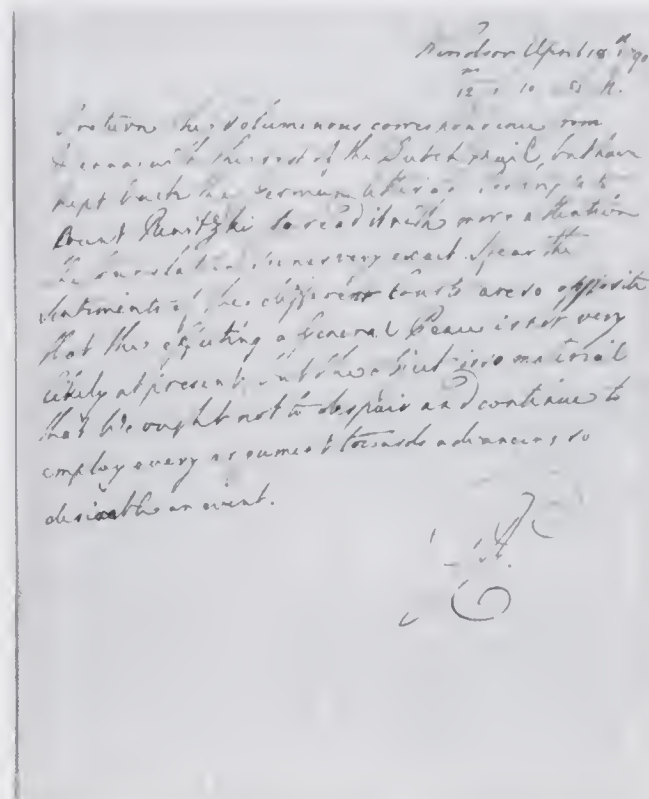 Windsor April 18th 1790
m
12 10 P.M.
I return the voluminous correspondence from
Vienna with the rest of the Dutch Mail, but have
kept back the
Count to read it with more attention
the translation is not very exact. I fear the
sentiments of the different Courts are so opposite
that the effecting a General Peace is not very
likely at present, but the object is so material
that We ought not to despair and continue to
employ every argument towards advancing so
desirable an event.